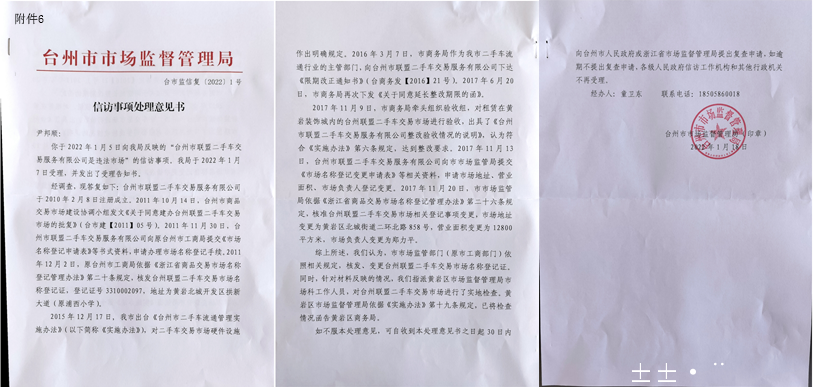 附件6
台州市市场监督管理局
台市监信复〔2022〕1号
信访事项处理意见书
尹邦顺:
你于2022年1月5日向我局反映的“台州市联盟二手车交
易服务有限公司是违法市场”的信访事项，我局于2022年1月
7日受理，并发出了受理告知书。
经调查，现答复如下：台州市联盟二手车交易服务有限公司
于2010年2月8日注册成立。2011年10月14日，台州市商品
交易市场建设协调小组发文《关于同意建办台州联盟二手车交易
市场的批复》（台市建【2011】05号）。2011年11月30日，台
州市联盟二手车交易服务有限公司向原台州市工商局提交《市场
名称登记申请表》等书式资料，申请办理市场名称登记手续。2011
年12月2日，原台州市工商局依据《浙江省商品市场名称
登记管理办法》第二十条规定，核发台州联盟二手车交易市场名称
登记证，登记证号3310002097，地址为黄岩北城开发区拱新
大道（原浦西小学）。
2015年12月17日，我市出台《台州市二手车流通管理实
施办法》（以下简称《实施办法》），对二手车交易市场硬件设施
作出明确规定。2016年3月7日，市商务局作为我市二手车流
通行业的主管部门，向台州联盟二手车交易服务有限公司下达
《限期改正通知书》（台商务发【2016】21号），2017年6月20
日，市商务局再次下发《关于同意延长整改期限的函》。
2017年11月9日，市商务局牵头组织验收组，对租赁在黄
岩装饰城内的台州联盟二手车交易市场进行验收，出具了《台州
市联盟二手车交易服务有限公司整改验收情况的说明》，认为符
合《实施办法》第六条规定，达到整改要求。2017年11月13
日，台州市联盟二手车交易服务有限公司向市市场监管局提交
《市场名称登记变更申请表》等相关资料，申请市场地址、营业
面积、市场负责人登记变更。2017年11月20日，市市场监管
局依据《浙江省商品市场名称登记管理办法》第二十六条规
定，核准台州联盟二手车交易市场相关登记事项变更，市场地址
变更为黄岩区北城街道二环北路858号，营业面积变更为12800
平方米，市场负责人变更为郑力平。
综上所述，我们认为，市市场监管部门（原市工商部门）依
照相关规定，核发、变更台州联盟二手车交易市场名称登记证。
同时，针对材料反映的情况，我们指派黄岩区市场监督管理局市
场科工作人员，对台州联盟二手车交易市场进行了实地检查，黄
岩区市场监督管理局依据《实施办法》第十九条规定，已将检查
情况函告黄岩区商务局。
如不服本处理意见，可自收到本处理意见书之日起30日内
向台州市人民政府或浙江省市场监督管理局提出复查申请，如逾
期不提出复查申请，各级人民政府信访工作机构和其他行政机关
不再受理。
经办人：童卫东 联系电话：18505860018
台州市市场监督管理局（印章）
2022年1月18日